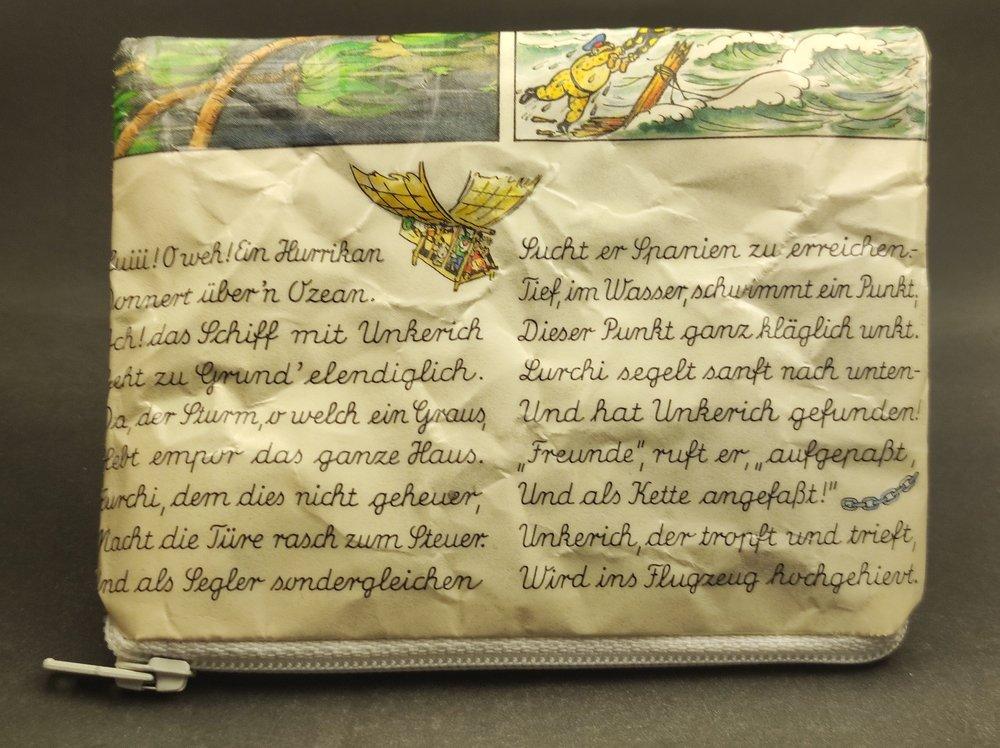 Huiii! O weh! Ein Hurrikan
Donnert über'n Ozean.
Ach! das Schiff mit Unkerich
Geht zu Grund' elendiglich.
Da, der Sturm, o welch ein Graus,
Hebt empor das ganze Haus.
Lurchi, dem dies nicht geheuer,
Macht die Türe rasch zum Steuer.
Und als Segler sondergleichen
Sucht er Spanien zu erreichen-
Tief, im Wasser, schwimmt ein Punkt,
Dieser Punkt ganz kläglich unkt.
Lurchi segelt sanft nach unten-
Und hat Unkerich gefunden!
„Freunde", ruft er, „aufgepaßt,
Und als Kette angefaßt!"
Unkerich, der tropft und trieft,
Wird ins Flugzeug hochgehievt.